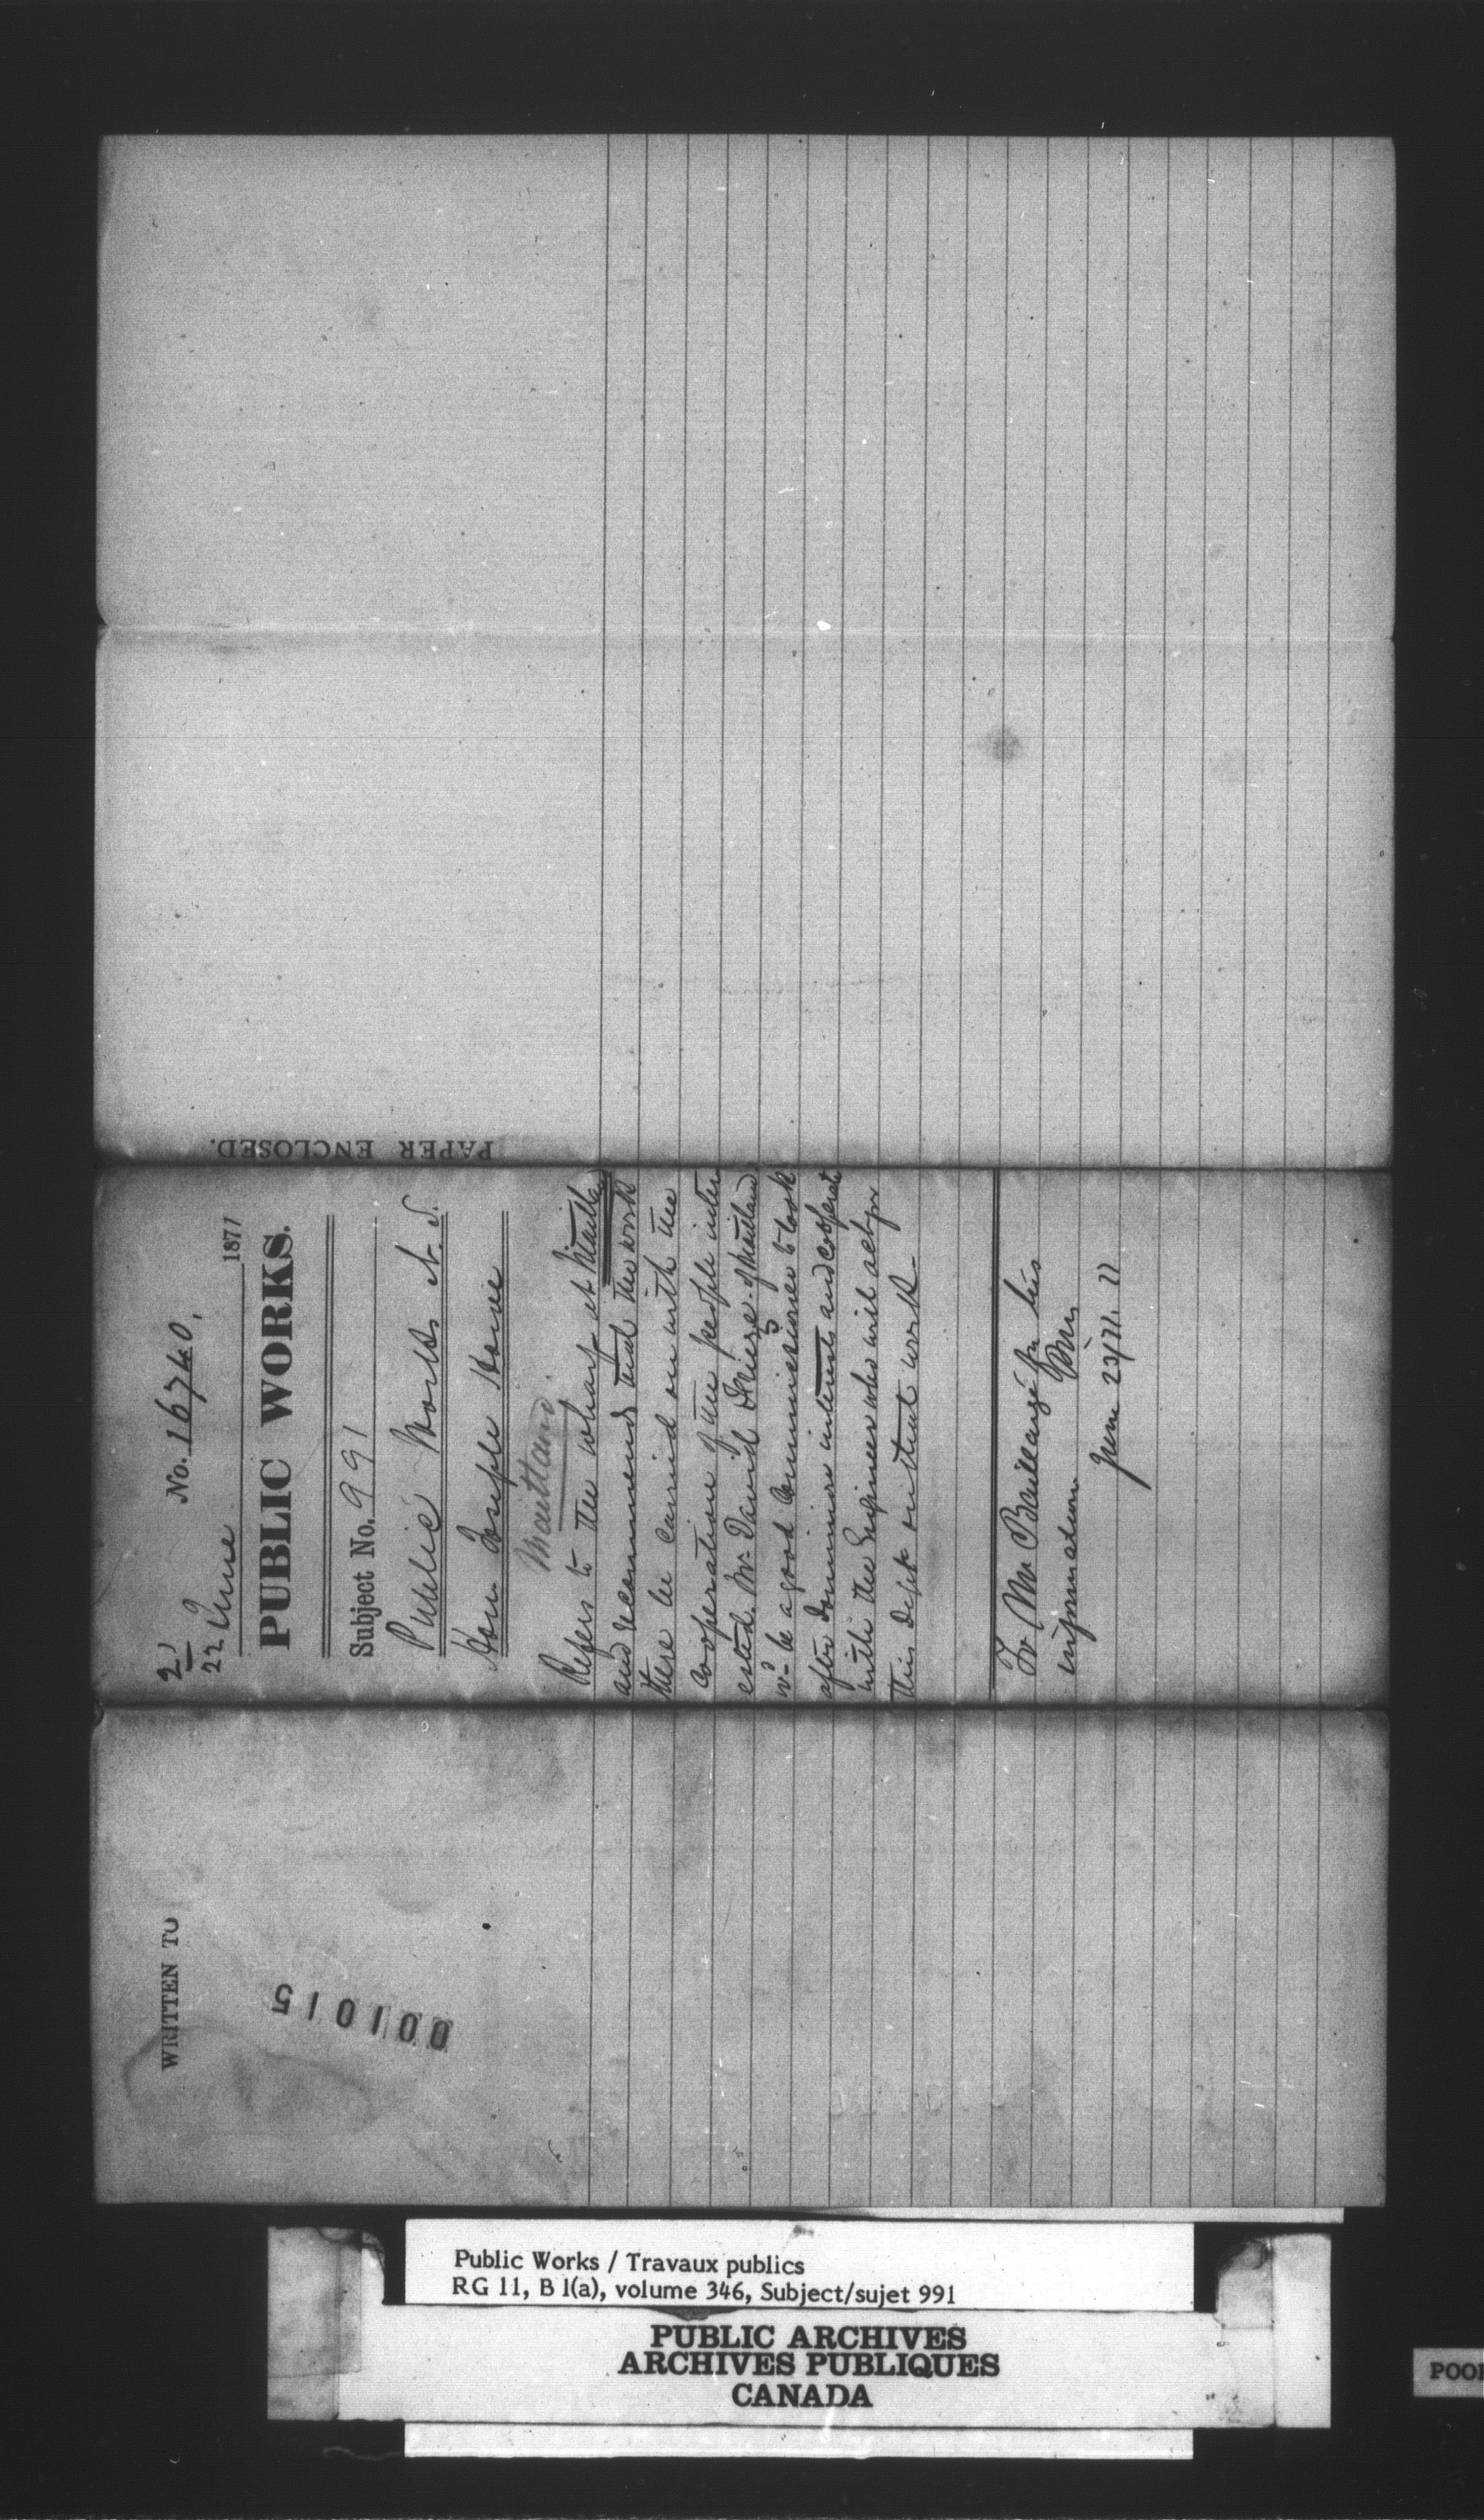 PAPER ENCLOSED.
2, No. 16740.
22 June 1877
PUBLIC WORKS.
Subject No. 991
Public Works N.S.
Hon. Joseph Howe
Maitland
Refers to the wharf at Maitland
and recommends that the work
there be carried on with the
cooperation of the people inter
ested. Mr. David of Maitland
wd. be a good Commissioner to look
after Dominion interests and cooperate
with the Engineer who will act for
this Dept. on that work.
To Mr Baillairgé for his
information
June 23/77.
WRITTEN TO
001015
Public Works / Travaux publics
RG 11, B 1(a), volume 346, Subject/sujet 991
PUBLIC ARCHIVES
ARCHIVES PUBLIQUES
CANADA
POOR